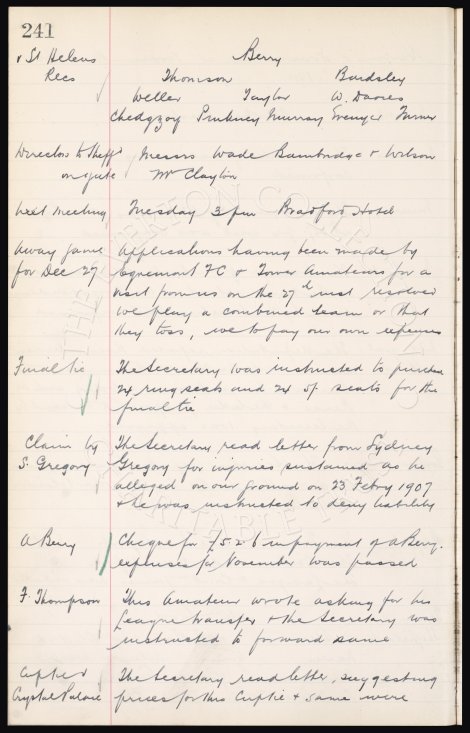 241
v St Helens Berry
Recs Thomson Bardsley
Weller Taylor W. Davies
Chedgzoy Pinkney Murray Turner
Directors to Sheffd Messrs Wade Bainbridge & Wilson
on gate Mr Clayton
Next Meeting Tuesday 3 pm Bradford Hotel
Away game Applications having been made by
for Dec 27 Egremont FC & Tower Amateurs for a
visit from us on the 27th inst resolved
we play a combined team or that
they toss, we to pay our own expenses
Final tie The Secretary was instructed to purchase
24 ring seats and 24 5/ seats for the
final tie
Claim by The Secretary read letter from Sydney
S. Gregory Gregory for injuries sustained as he
alleged on our ground on 23 Febry 1907
& he was instructed to deny liability
A Berry Cheque for £5.2.6 in payment of A Berry.
expenses for November was passed
F. Thompson This Amateur wrote asking for his
League transfer & the Secretary was
instructed to forward same
Cup tie v The Secretary read letter, suggesting
Crystal Palace prices for this Cup tie & same were
THE EVERTON COLLECTION
CHARITABLE TRUST